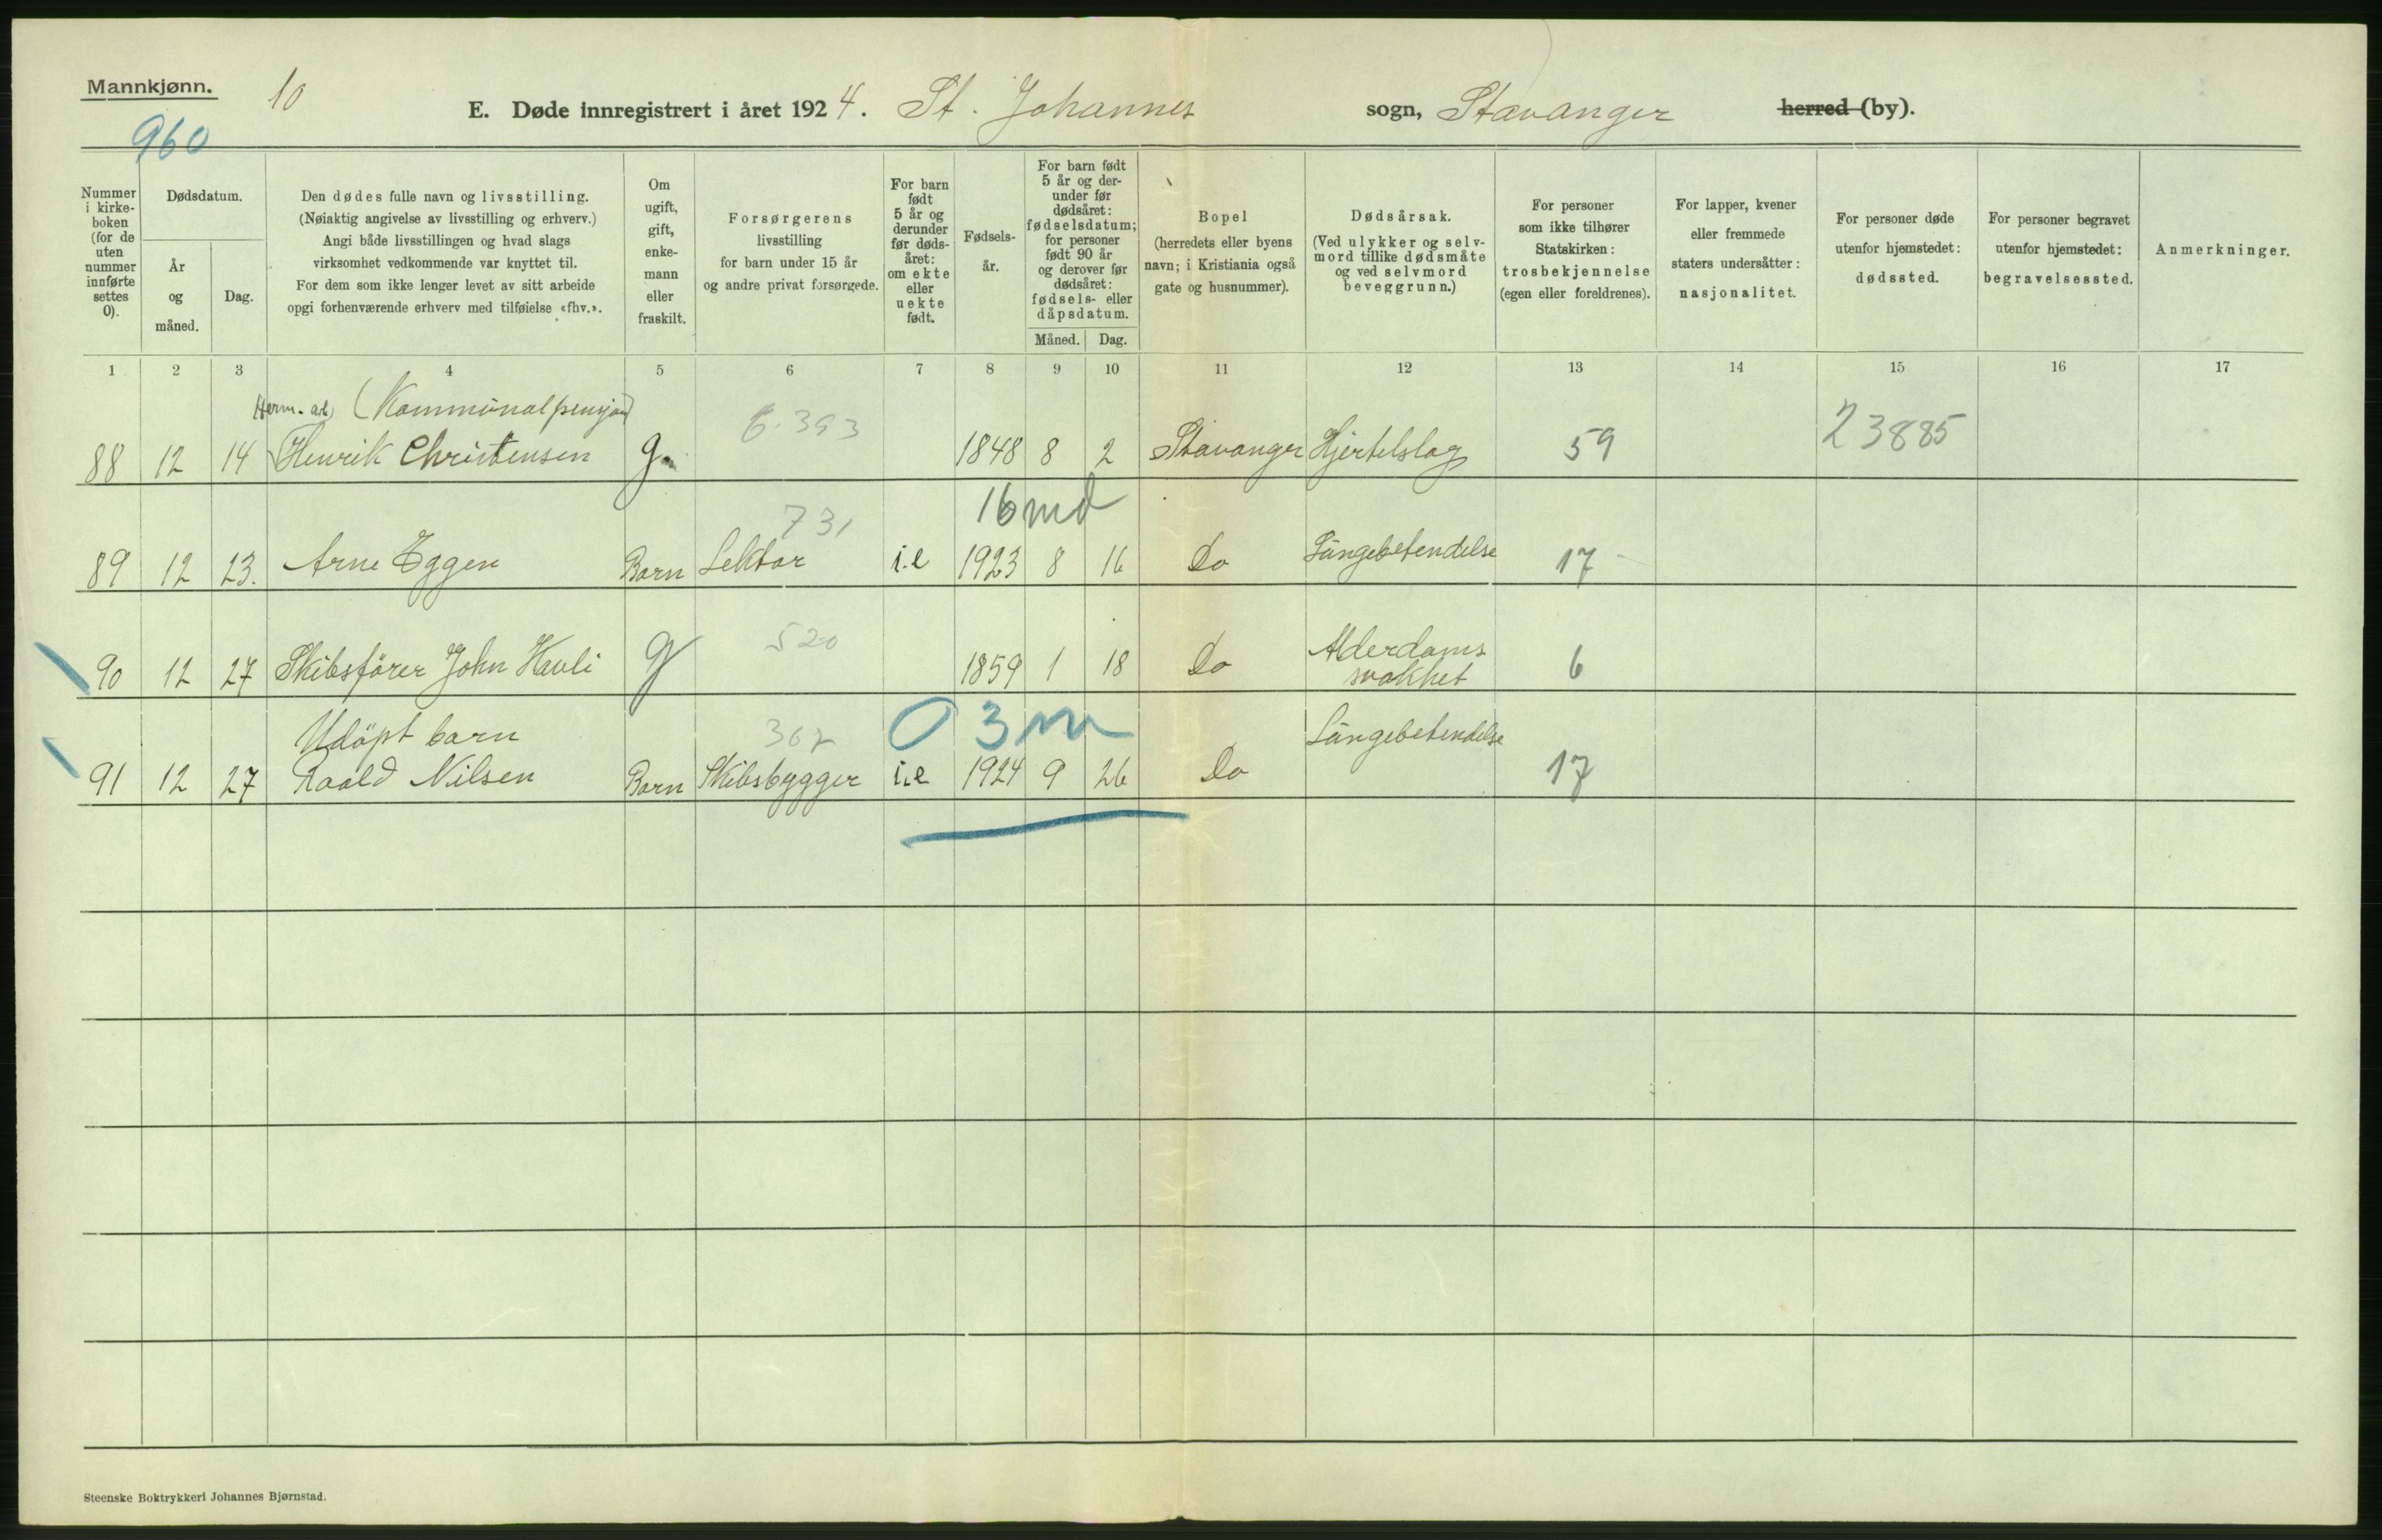 Mannkjønn.
10
960
E. Døde innregistrert i året 1924. St. Johannes sogn, Stavanger herred (by).
Nummer i kirke-boken (for de uten nummer innførte settes 0).
Dødsdatum.
År og måned.
Dag.
Den dødes fulle navn og livsstilling.
(Nøiaktig angivelse av livsstilling og erhverv.)
Angi både livsstillingen og hvad slags
virksomhet vedkommende var knyttet til.
For dem som ikke lenger levet av sitt arbeide
opgi forhenværende erhverv med tilføielse «fhv.».
Om ugift, gift, enke-mann eller fraskilt.
Forsørgerens
livsstilling
for barn under 15 år
og andre privat forsørgede.
For barn født 5 år og derunder før døds-året: om ekte eller uekte født.
Fødsels-år.
For barn født 5 år og der-under før dødsåret: fødselsdatum; for personer født 90 år og derover før dødsåret: fødsels- eller dåpsdatum.
Måned. Dag.
Bopel
(herredets eller byens
navn; i Kristiania også
gate og husnummer).
Dødsårsak.
(Ved ulykker og selv-
mord tillike dødsmåte
og ved selvmord
beveggrunn.)
For personer
som ikke tilhører
Statskirken:
trosbekjennelse
(egen eller foreldrenes).
For lapper, kvener
eller fremmede
staters undersåtter:
nasjonalitet.
For personer døde
utenfor hjemstedet:
dødssted.
For personer begravet
utenfor hjemstedet:
begravelsessted.
Anmerkninger.
1 2 3 4 5 6 7 8 9 10 11 12 13 14 15 16 17
(Kommunalpensjon)
88 12 14 Henrik Christensen g. 6.393 1848 8 2 Stavanger Hjertelslag 59 23885
16 md
731
89 12 23. Arne Eggen Barn Lektor i.e 1923 8 16 Do Lungebetendelse 17
520
90 12 27 Skibsfører John Havli g 1859 1 18 Do Alderdoms
svakhet 6
Udöpt barn 367 0 3 m Lungebetendelse
91 12 27 Roald Nilsen Barn Skibsbygger i.e 1924 9 26 Do 17
Steenske Boktrykkeri Johannes Bjørnstad.